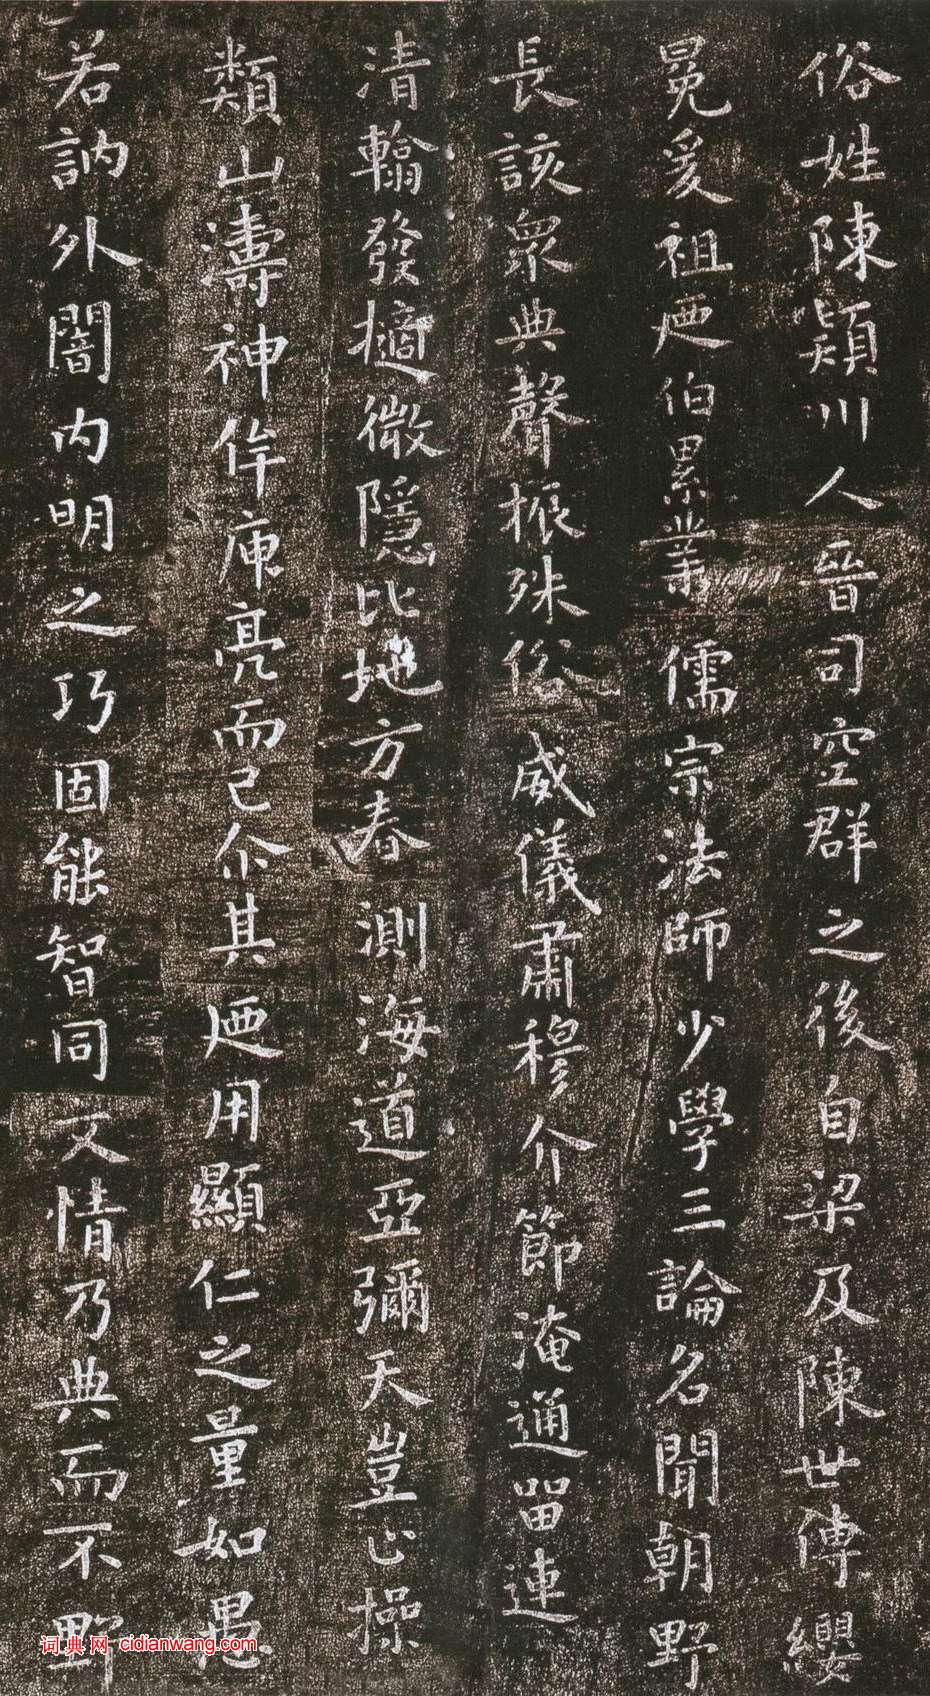 俗姓陳潁川人晉司空群之後自梁及陳世傳纓
冕爰祖廼伯累業儒宗法師少學三論名聞朝野
長該眾典聲振殊俗威儀肅穆介節淹通留連
清翰發擿微隱比地方春測海道亞彌天豈止操
類山濤神侔庾亮而已尒其廼用顯仁之量如愚
若訥外闇內明之巧固能智同文情乃典而不野
词典网 cidianwang.com